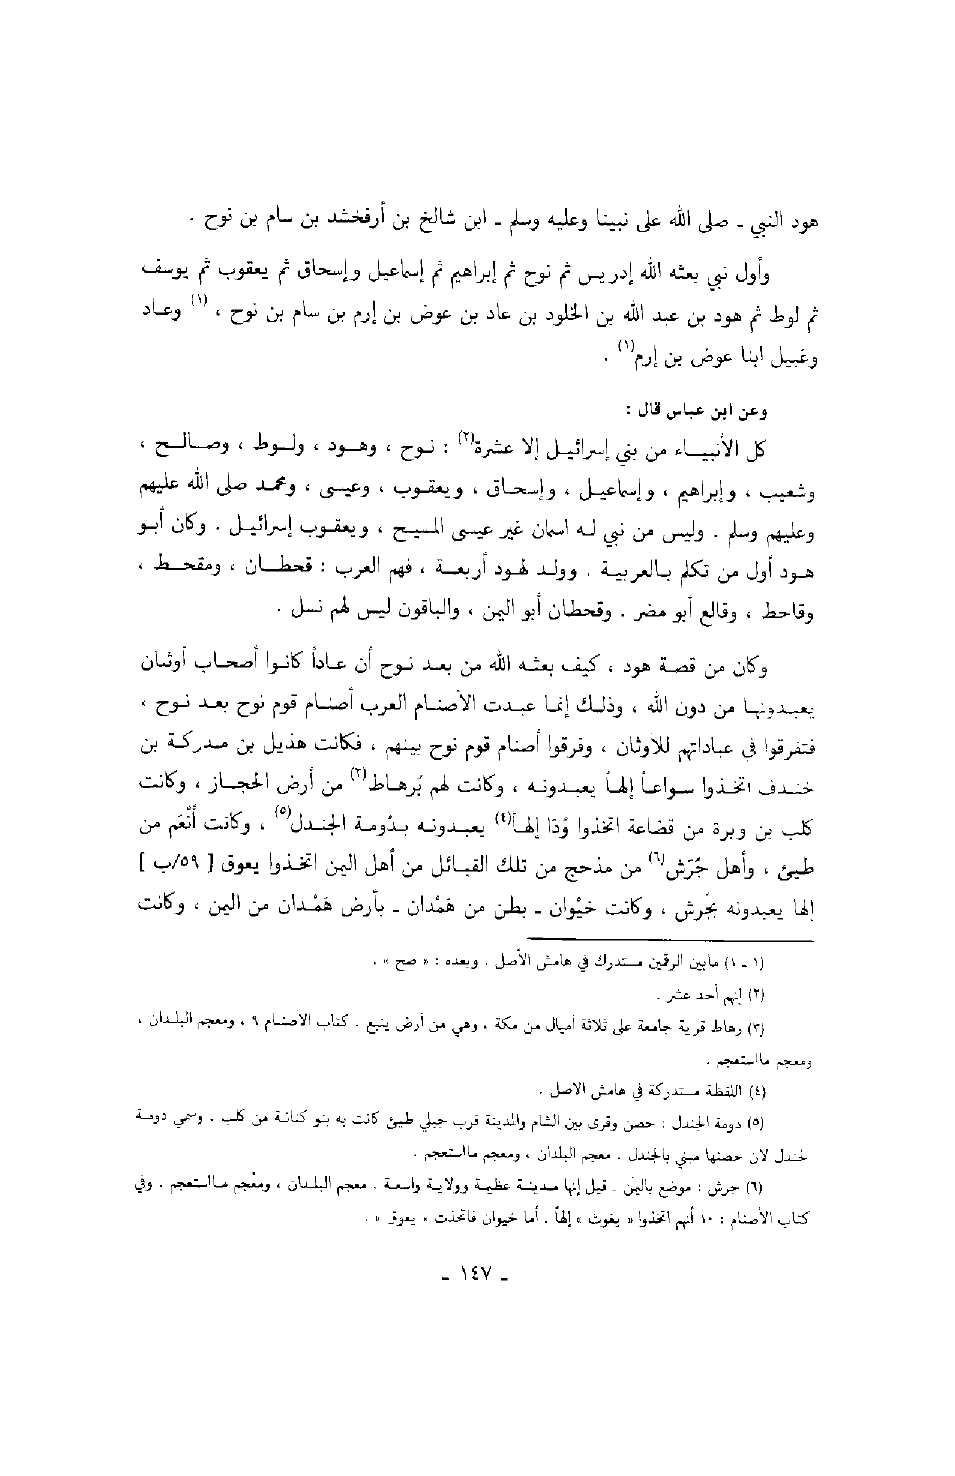 هود النبي ـ صلى الله على نبينا وعليه وسلم ـ ابن شالخ بن أرفخشد بن سام بن نوح .
وأول نبي بعثه الله إدريس ثم نوح ثم إبراهيم ثم إسماعيل وإسحاق ثم يعقوب ثم يوسف
ثم لوط ثم هود بن عبد الله بن الخلود بن عاد بن عوض بن إرم بن سام بن نوح ، (١) وعاد
وعبيل ابنا عوض بن إرم(١) .
وعن ابن عباس قال :
كل الأنبياء من بني إسرائيل إلا عشرة(٢) : نوح ، وهود ، ولوط ، وصالح ،
وشعيب ، وإبراهيم ، وإسماعيل ، وإسحاق ، ويعقوب ، وعيسى ، ومحمد صلى الله عليهم
وعليهم وسلم . وليس من نبي له اسمان غير عيسى المسيح ، ويعقوب إسرائيل . وكان أبو
هود أول من تكلم بالعربية . وولد لهود أربعة ، فهم العرب : قحطان ، ومقحط ،
وقاحط ، وفالع أبو مضر . وقحطان أبو اليمن ، والباقون ليس لهم نسل .
وكان من قصة هود ، كيف بعثه الله من بعد نوح أن عاداً كانوا أصحاب أوثان
يعبدونها من دون الله ، وذلك إنما عبدت الأصنام العرب أصنام قوم نوح بعد نوح ،
فتفرقوا في عباداتهم للأوثان ، وفرقوا أصنام قوم نوح بينهم ، فكانت هذيل بن مدركة بن
خندف اتخذوا سواعاً إلهاً يعبدونه ، وكانت لهم بُرهاط(٣) من أرض الحجاز ، وكانت
كلب بن وبرة من قضاعة اتخذوا وُدّا إلهاً(٤) يعبدونه بدُومة الجندل(٥) ، وكانت أَنْعُم من
طيئ ، وأهل جُرَش(٦) من مذحج من تلك القبائل من أهل اليمن اتخذوا يعوق [ ٥٩/ب ]
إلها يعبدونه بجُرش ، وكانت خَيْوان ـ بطن من هَمْدان ـ بأرض هَمْدان من اليمن ، وكانت
(١ ـ ١) مابين الرقمين مستدرك في هامش الأصل . وبعده : « صح » .
(٢) إنهم أحد عشر .
(٣) رهاط قرية جامعة على ثلاثة أميال من مكة ، وهي من أرض ينبع . كتاب الأصنام ٩ ، ومعجم البلدان ،
ومعجم مااستعجم .
(٤) اللفظة مستدركة في هامش الأصل .
(٥) دومة الجندل : حصن وقرى بين الشام والمدينة قرب جبلي طيئ كانت به بنو كنانة من كلب . وسمي دومة
لجندل لأن حصنها مبني بالجندل . معجم البلدان ، ومعجم مااستعجم .
(٦) جرش : موضع باليمن . قيل إنها مدينة عظيمة وولاية واسعة . معجم البلدان ، ومعْجم مااستعجم . وفي
كتاب الأصنام : ١٠ أنهم اتخذوا « يغوث » إلهاً . أما خيوان فاتخذت « يعوق » .
ـ ١٤٧ ـ